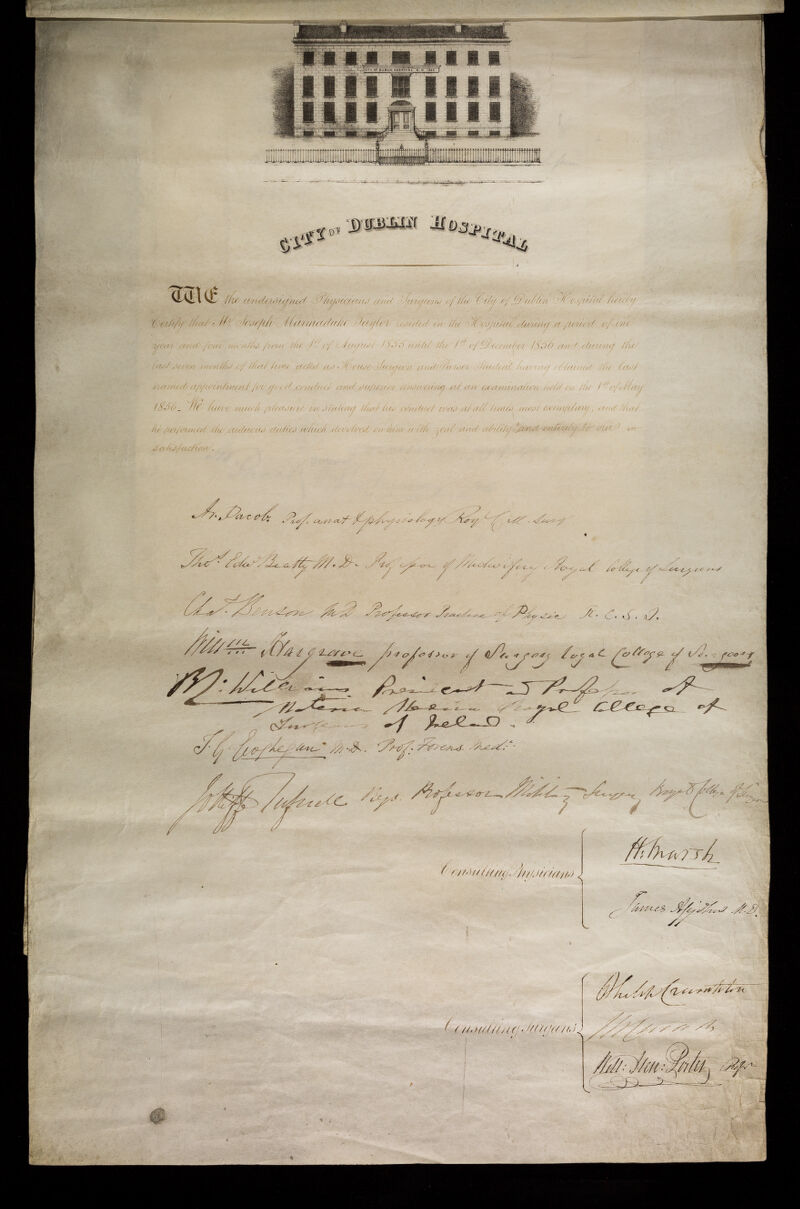 CITY OF DUBLIN HOSPITAL
WE the undersigned Physicians and Surgeons of the City of Dublin Hospital hereby
Certify that Mr. Joseph Marmaduke Taylor resided in the Hospital during a period of one
year and four months from the 1st of August 1855 until the 1st of December 1856 and during the
last seven months of that time acted as House Surgeon and Purser Student having obtained the last
named appointment for good conduct and superior answering at an examination held on the 1st of May
1856. We have much pleasure in stating that his conduct was at all times most exemplary, and that
he performed the arduous duties which devolved on him with zeal and ability and entirely to our
satisfaction.
Ar. Jacob Prof. anat & physiology Roy. Coll. Surg
Thos. Edwd. Beatty M.D. Professor of Midwifery Royal College of Surgeons
Chas. Benson MD Professor Practice of Physic R.C.S.I.
Willm Hargrave professor of Surgery Royal College of Surgeons
Williams President & Professor of
Materia Medica Royal College of
Surgeons of Ireland.
T. G. Geoghegan M.D. Prof. Forens. Med.
Jolliffe Tufnell Regs. Professor Military Surgery Royal College of Surgeons
Consulting Physicians
H. Marsh
James Apjohn M.D.
Consulting Surgeons
Philip Crampton
Will: Hen: Porter